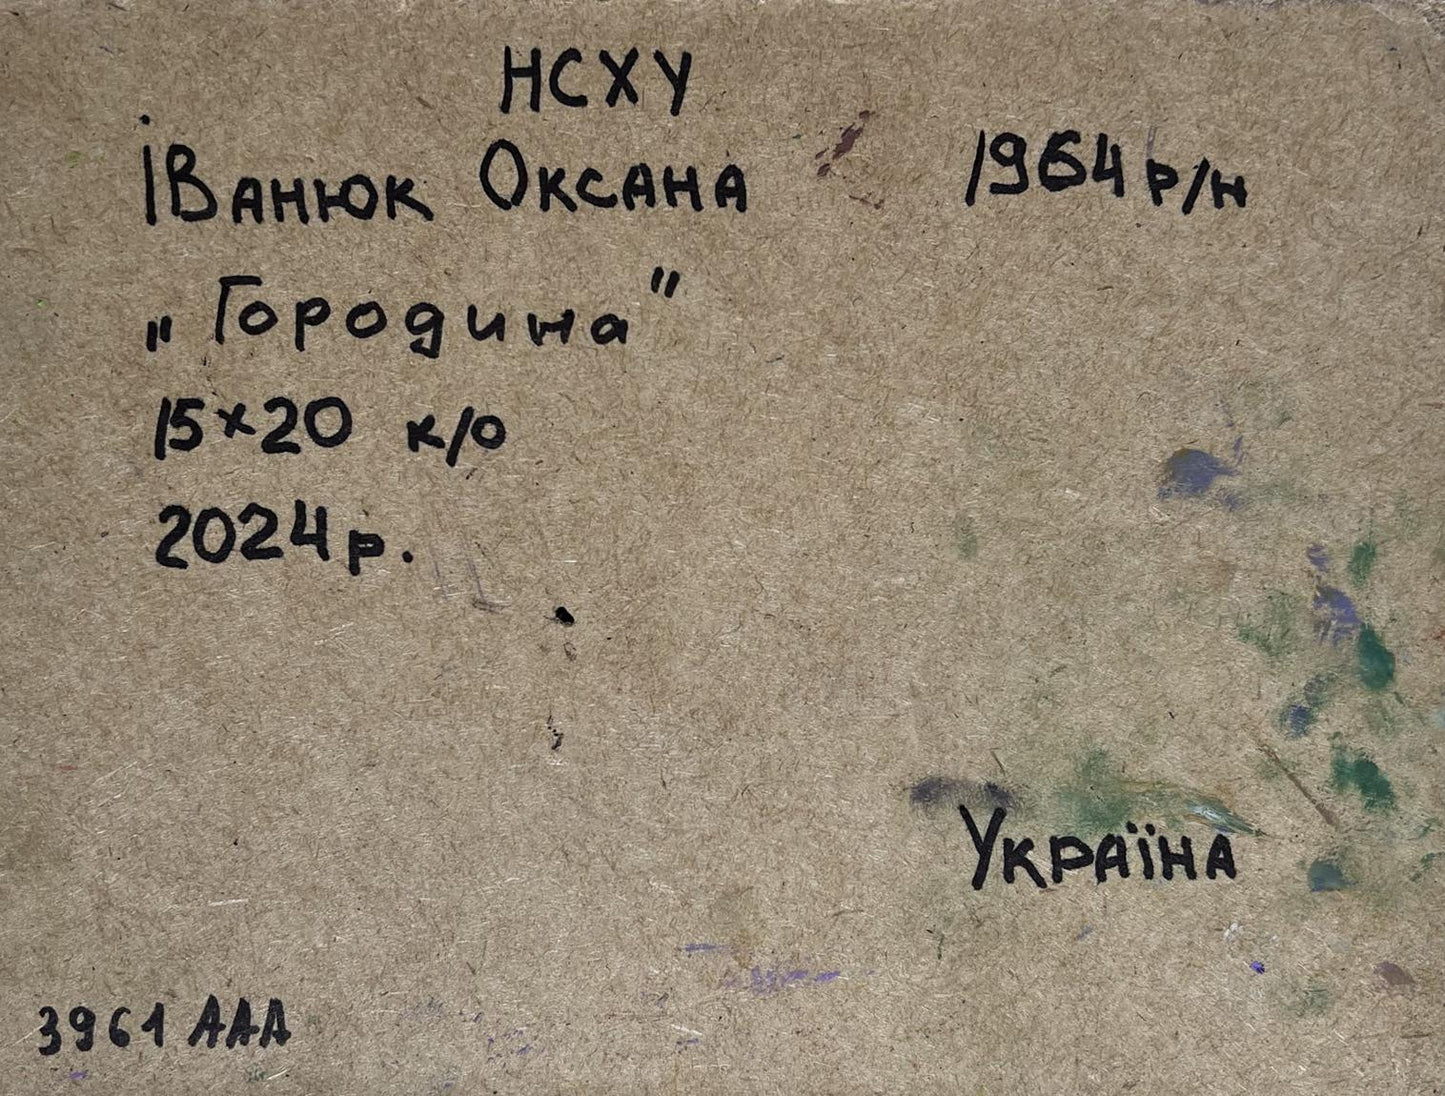 НСХУ
Іванюк Оксана 1964 р/н
„Городина"
15×20 к/о
2024р.
Україна
3961 ААА